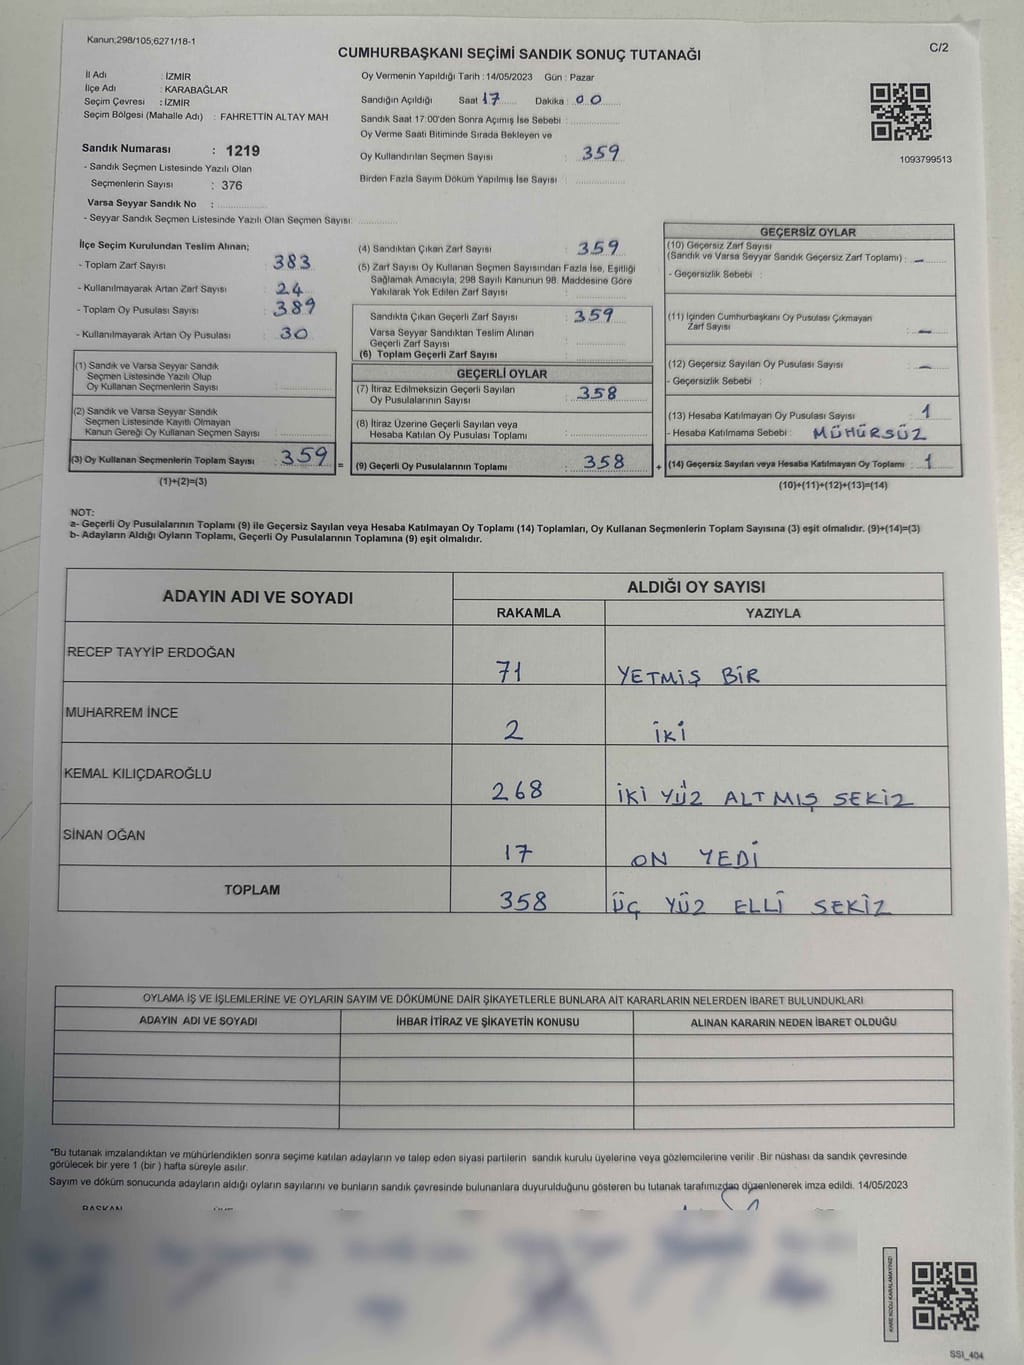 Kanun;298/105;6271/18-1
CUMHURBAŞKANI SEÇİMİ SANDIK SONUÇ TUTANAĞI
C/2
İl Adı : İZMİR
İlçe Adı : KARABAĞLAR
Seçim Çevresi : İZMİR
Seçim Bölgesi (Mahalle Adı) : FAHRETTİN ALTAY MAH
Sandık Numarası : 1219
- Sandık Seçmen Listesinde Yazılı Olan
Seçmenlerin Sayısı : 376
Varsa Seyyar Sandık No :
- Seyyar Sandık Seçmen Listesinde Yazılı Olan Seçmen Sayısı:
Oy Vermenin Yapıldığı Tarih : 14/05/2023 Gün : Pazar
Sandığın Açıldığı Saat 17 Dakika : 00
Sandık Saat 17:00'den Sonra Açımış İse Sebebi :
Oy Verme Saati Bitiminde Sırada Bekleyen ve
Oy Kullandırılan Seçmen Sayısı : 359
Birden Fazla Sayım Döküm Yapılmış İse Sayısı :
1093799513
İlçe Seçim Kurulundan Teslim Alınan;
- Toplam Zarf Sayısı : 383
- Kullanılmayarak Artan Zarf Sayısı : 24
- Toplam Oy Pusulası Sayısı : 389
- Kullanılmayarak Artan Oy Pusulası : 30
(1) Sandık ve Varsa Seyyar Sandık
Seçmen Listesinde Yazılı Olup
Oy Kullanan Seçmenlerin Sayısı :
(2) Sandık ve Varsa Seyyar Sandık
Seçmen Listesinde Kayıtlı Olmayan
Kanun Gereği Oy Kullanan Seçmen Sayısı :
(3) Oy Kullanan Seçmenlerin Toplam Sayısı : 359 =
(1)+(2)=(3)
(4) Sandıktan Çıkan Zarf Sayısı : 359
(5) Zarf Sayısı Oy Kullanan Seçmen Sayısından Fazla İse, Eşitliği
Sağlamak Amacıyla; 298 Sayılı Kanunun 98. Maddesine Göre
Yakılarak Yok Edilen Zarf Sayısı :
Sandıkta Çıkan Geçerli Zarf Sayısı : 359
Varsa Seyyar Sandıktan Teslim Alınan
Geçerli Zarf Sayısı :
(6) Toplam Geçerli Zarf Sayısı :
GEÇERLİ OYLAR
(7) İtiraz Edilmeksizin Geçerli Sayılan
Oy Pusulalarının Sayısı : 358
(8) İtiraz Üzerine Geçerli Sayılan veya
Hesaba Katılan Oy Pusulası Toplamı :
(9) Geçerli Oy Pusulalarının Toplamı : 358 +
GEÇERSİZ OYLAR
(10) Geçersiz Zarf Sayısı
(Sandık ve Varsa Seyyar Sandık Geçersiz Zarf Toplamı) : –
- Geçersizlik Sebebi :
(11) İçinden Cumhurbaşkanı Oy Pusulası Çıkmayan
Zarf Sayısı : –
(12) Geçersiz Sayılan Oy Pusulası Sayısı : –
- Geçersizlik Sebebi :
(13) Hesaba Katılmayan Oy Pusulası Sayısı : 1
- Hesaba Katılmama Sebebi : MÜHÜRSÜZ
(14) Geçersiz Sayılan veya Hesaba Katılmayan Oy Toplamı : 1
(10)+(11)+(12)+(13)=(14)
NOT:
a- Geçerli Oy Pusulalarının Toplamı (9) ile Geçersiz Sayılan veya Hesaba Katılmayan Oy Toplamı (14) Toplamları, Oy Kullanan Seçmenlerin Toplam Sayısına (3) eşit olmalıdır. (9)+(14)=(3)
b- Adayların Aldığı Oyların Toplamı, Geçerli Oy Pusulalarının Toplamına (9) eşit olmalıdır.
ADAYIN ADI VE SOYADI ALDIĞI OY SAYISI
RAKAMLA YAZIYLA
RECEP TAYYİP ERDOĞAN 71 YETMİŞ BİR
MUHARREM İNCE 2 İKİ
KEMAL KILIÇDAROĞLU 268 İKİ YÜZ ALTMIŞ SEKİZ
SİNAN OĞAN 17 ON YEDİ
TOPLAM 358 ÜÇ YÜZ ELLİ SEKİZ
OYLAMA İŞ VE İŞLEMLERİNE VE OYLARIN SAYIM VE DÖKÜMÜNE DAİR ŞİKAYETLERLE BUNLARA AİT KARARLARIN NELERDEN İBARET BULUNDUKLARI
ADAYIN ADI VE SOYADI İHBAR İTİRAZ VE ŞİKAYETİN KONUSU ALINAN KARARIN NEDEN İBARET OLDUĞU
*Bu tutanak imzalandıktan ve mühürlendikten sonra seçime katılan adayların ve talep eden siyasi partilerin sandık kurulu üyelerine veya gözlemcilerine verilir. Bir nüshası da sandık çevresinde
görülecek bir yere 1 (bir ) hafta süreyle asılır.
Sayım ve döküm sonucunda adayların aldığı oyların sayılarını ve bunların sandık çevresinde bulunanlara duyurulduğunu gösteren bu tutanak tarafımızdan düzenlenerek imza edildi. 14/05/2023
BAŞKAN
KARE KODU KARALAMAYINIZ!
SSI_404